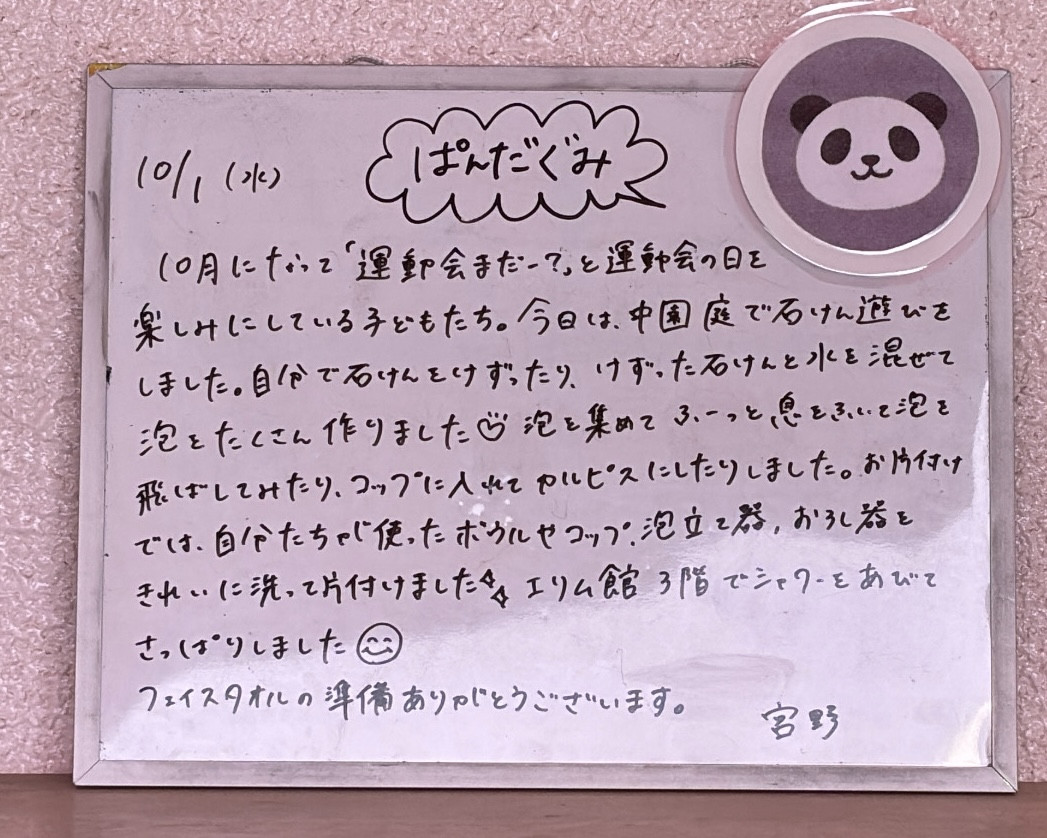 10/1 (水)
ぱんだぐみ
10月になって「運動会まだー?」と運動会の日を
楽しみにしている子どもたち。今日は、中園庭で石けん遊びを
しました。自分で石けんをけずったり、けずった石けんと水を混ぜて
泡をたくさん作りました 泡を集めてふーっと息をふいて泡を
飛ばしてみたり、コップに入れてカルピスにしたりしました。お片付け
では、自分たちが使ったボウルやコップ、泡立て器、おろし器を
きれいに洗って片付けました エリム館3階でシャワーをあびて
さっぱりしました
フェイスタオルの準備ありがとうございます。
宮野